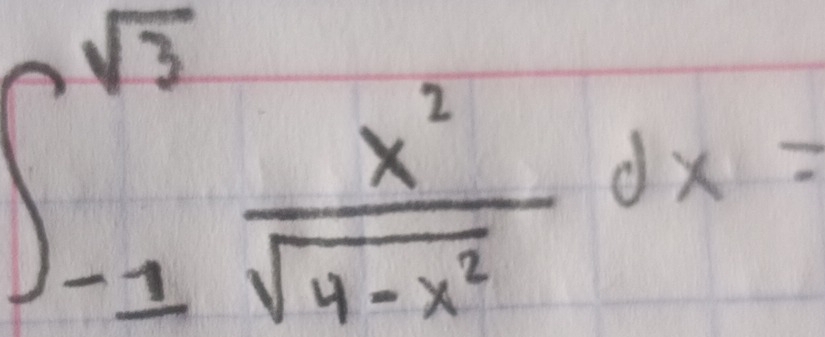 ∫_{-1}^{√3} x²/√(4-x²) dx =